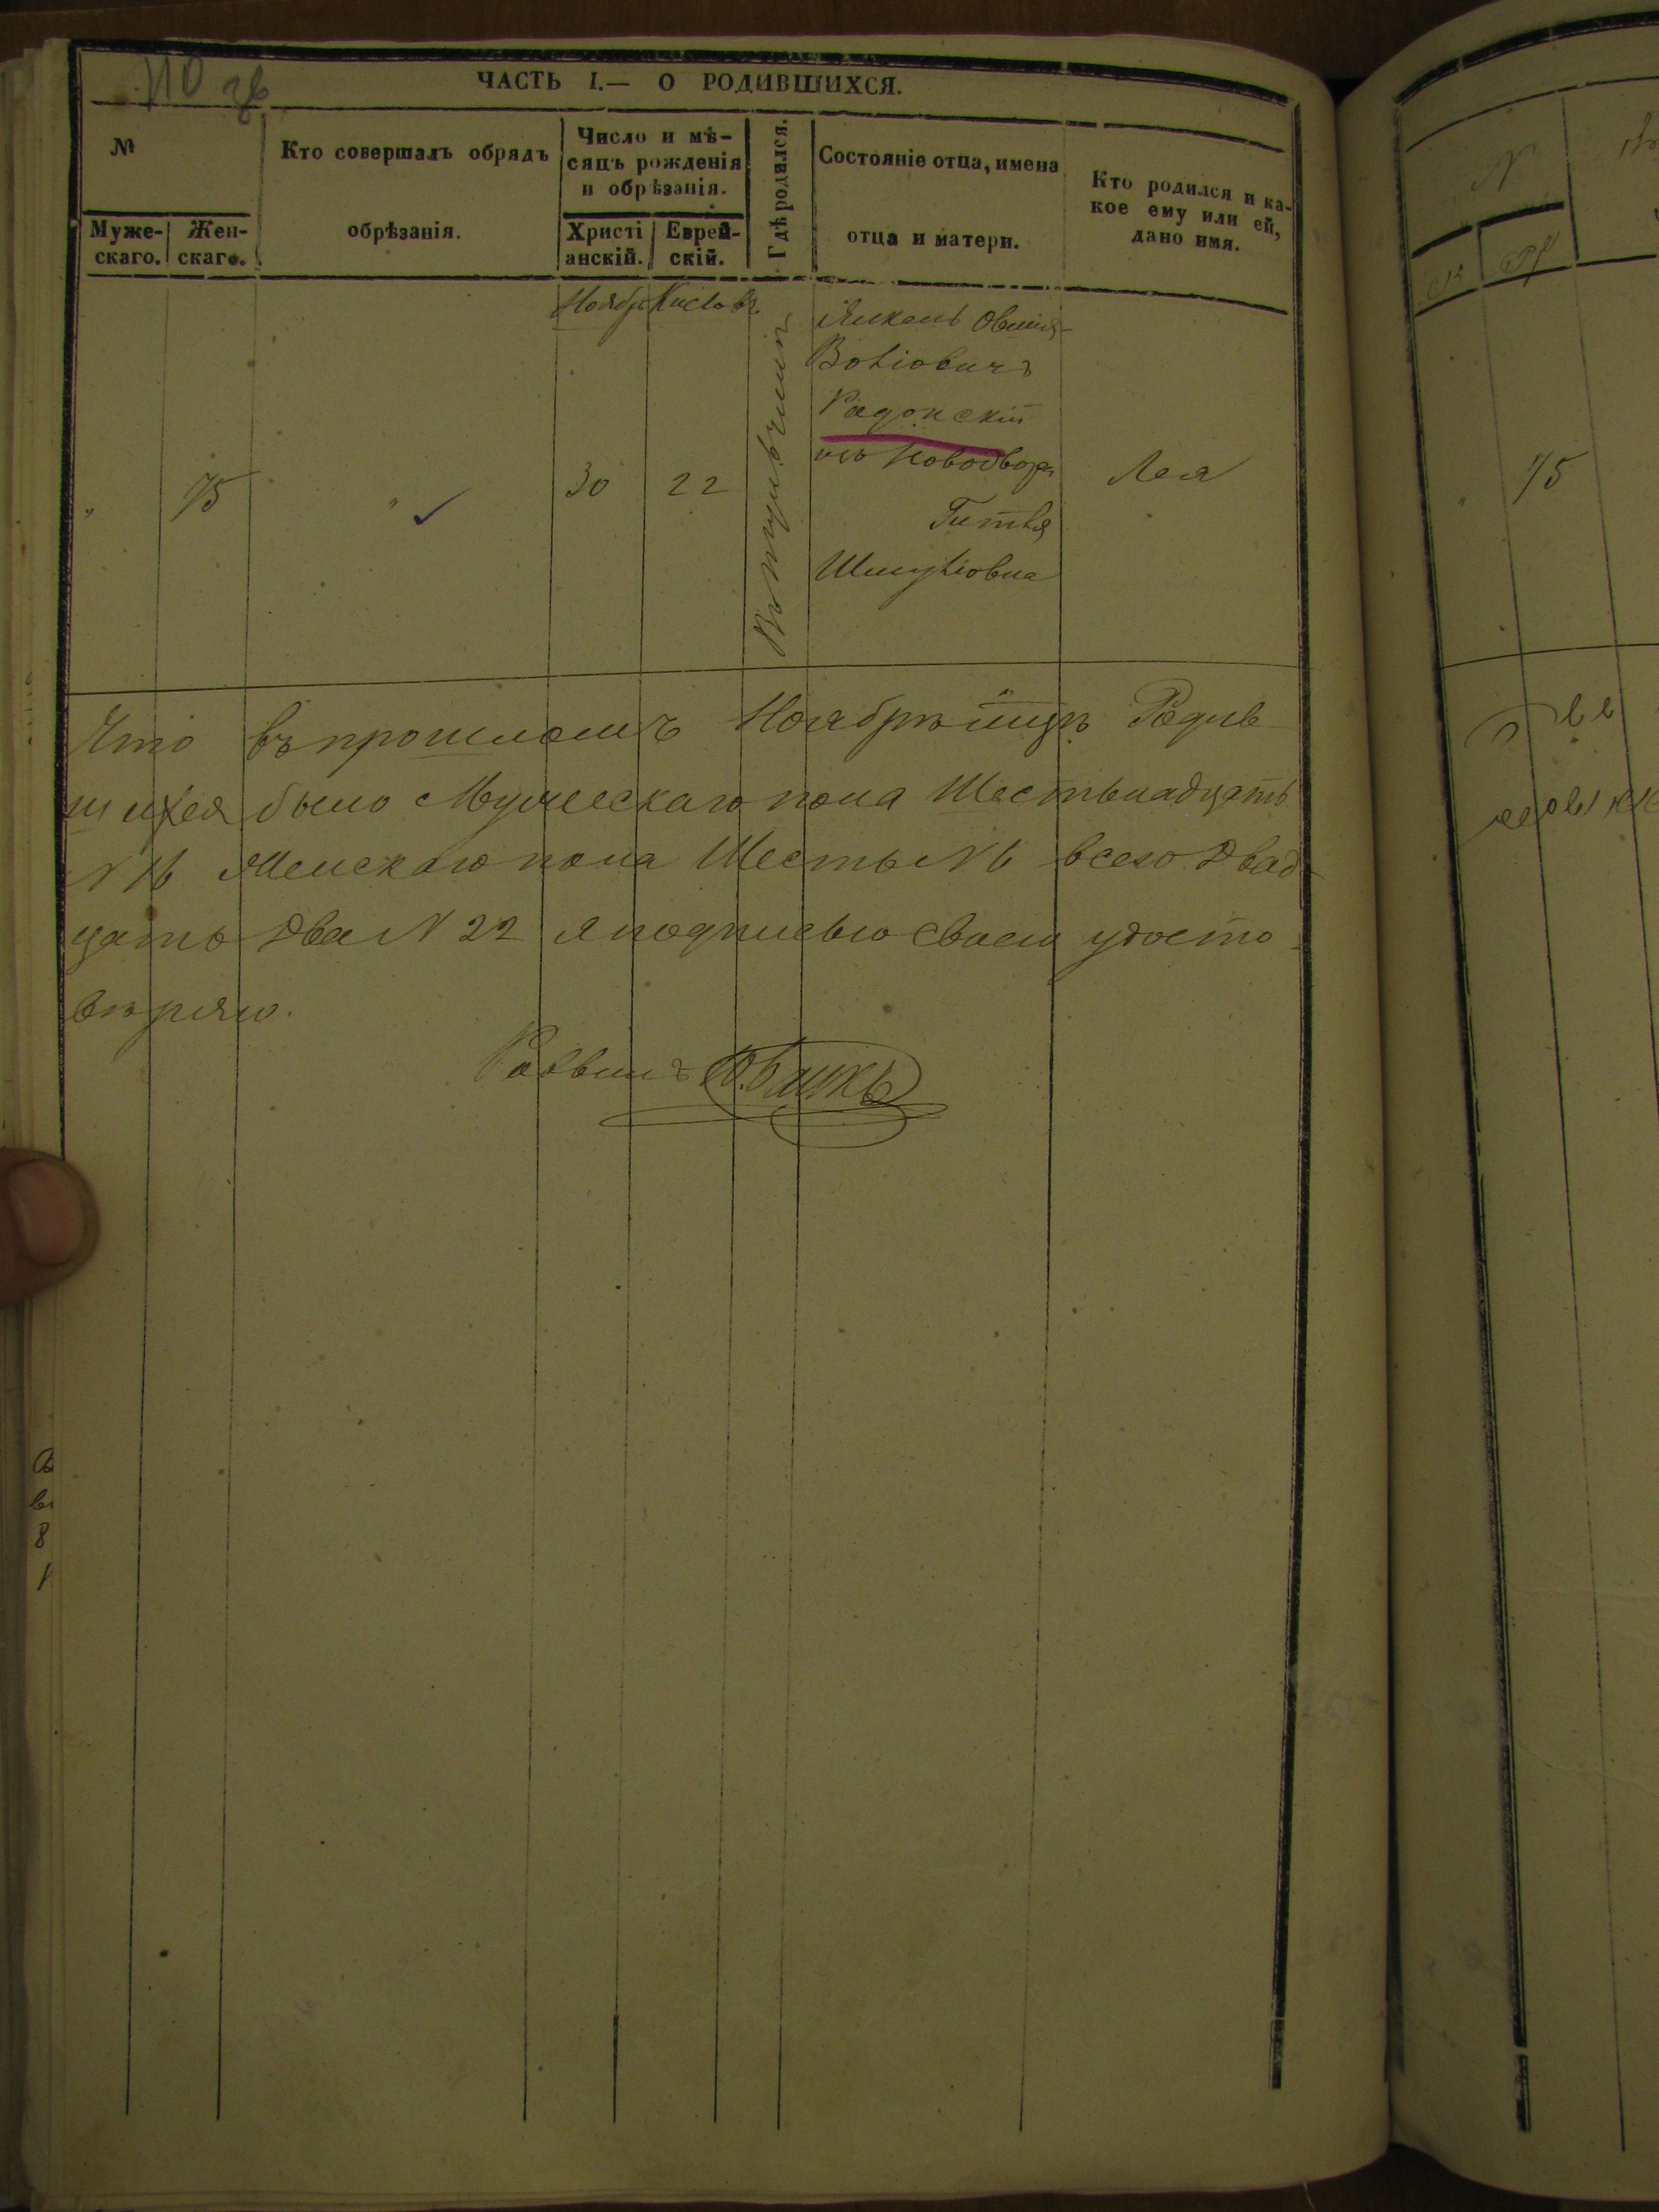 110 об
ЧАСТЬ I.— О РОДИВШИХСЯ.
№
Муже-
скаго.
Жен-
скаго.
Кто совершалъ обрядъ
обрѣзанія.
Число и мѣ-
сяцъ рожденія
и обрѣзанія.
Христі
анскій.
Еврей-
скій.
Гдѣ родился.
Состояніе отца, имена
отца и матери.
Кто родился и ка-
кое ему или ей,
дано имя.
Ноябр Кислевъ
Янкель Овшія-
Радонскій
изъ Новодвор
" 75 " 30 22 Лея
Гитля
Шмуліовна
Что въ прошломъ Ноябрѣ м-цѣ Родив
шихся было Мужескаго пола Шестьнадцать
N 16 Женскаго пола Шесть N 6 всего Двад-
цать Два N 22 я подписью своею удосто-
вѣряю.
Раввинъ
75